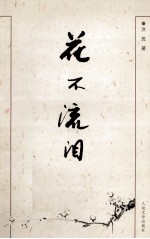 洪烛 著
花不流泪
人民文学出版社